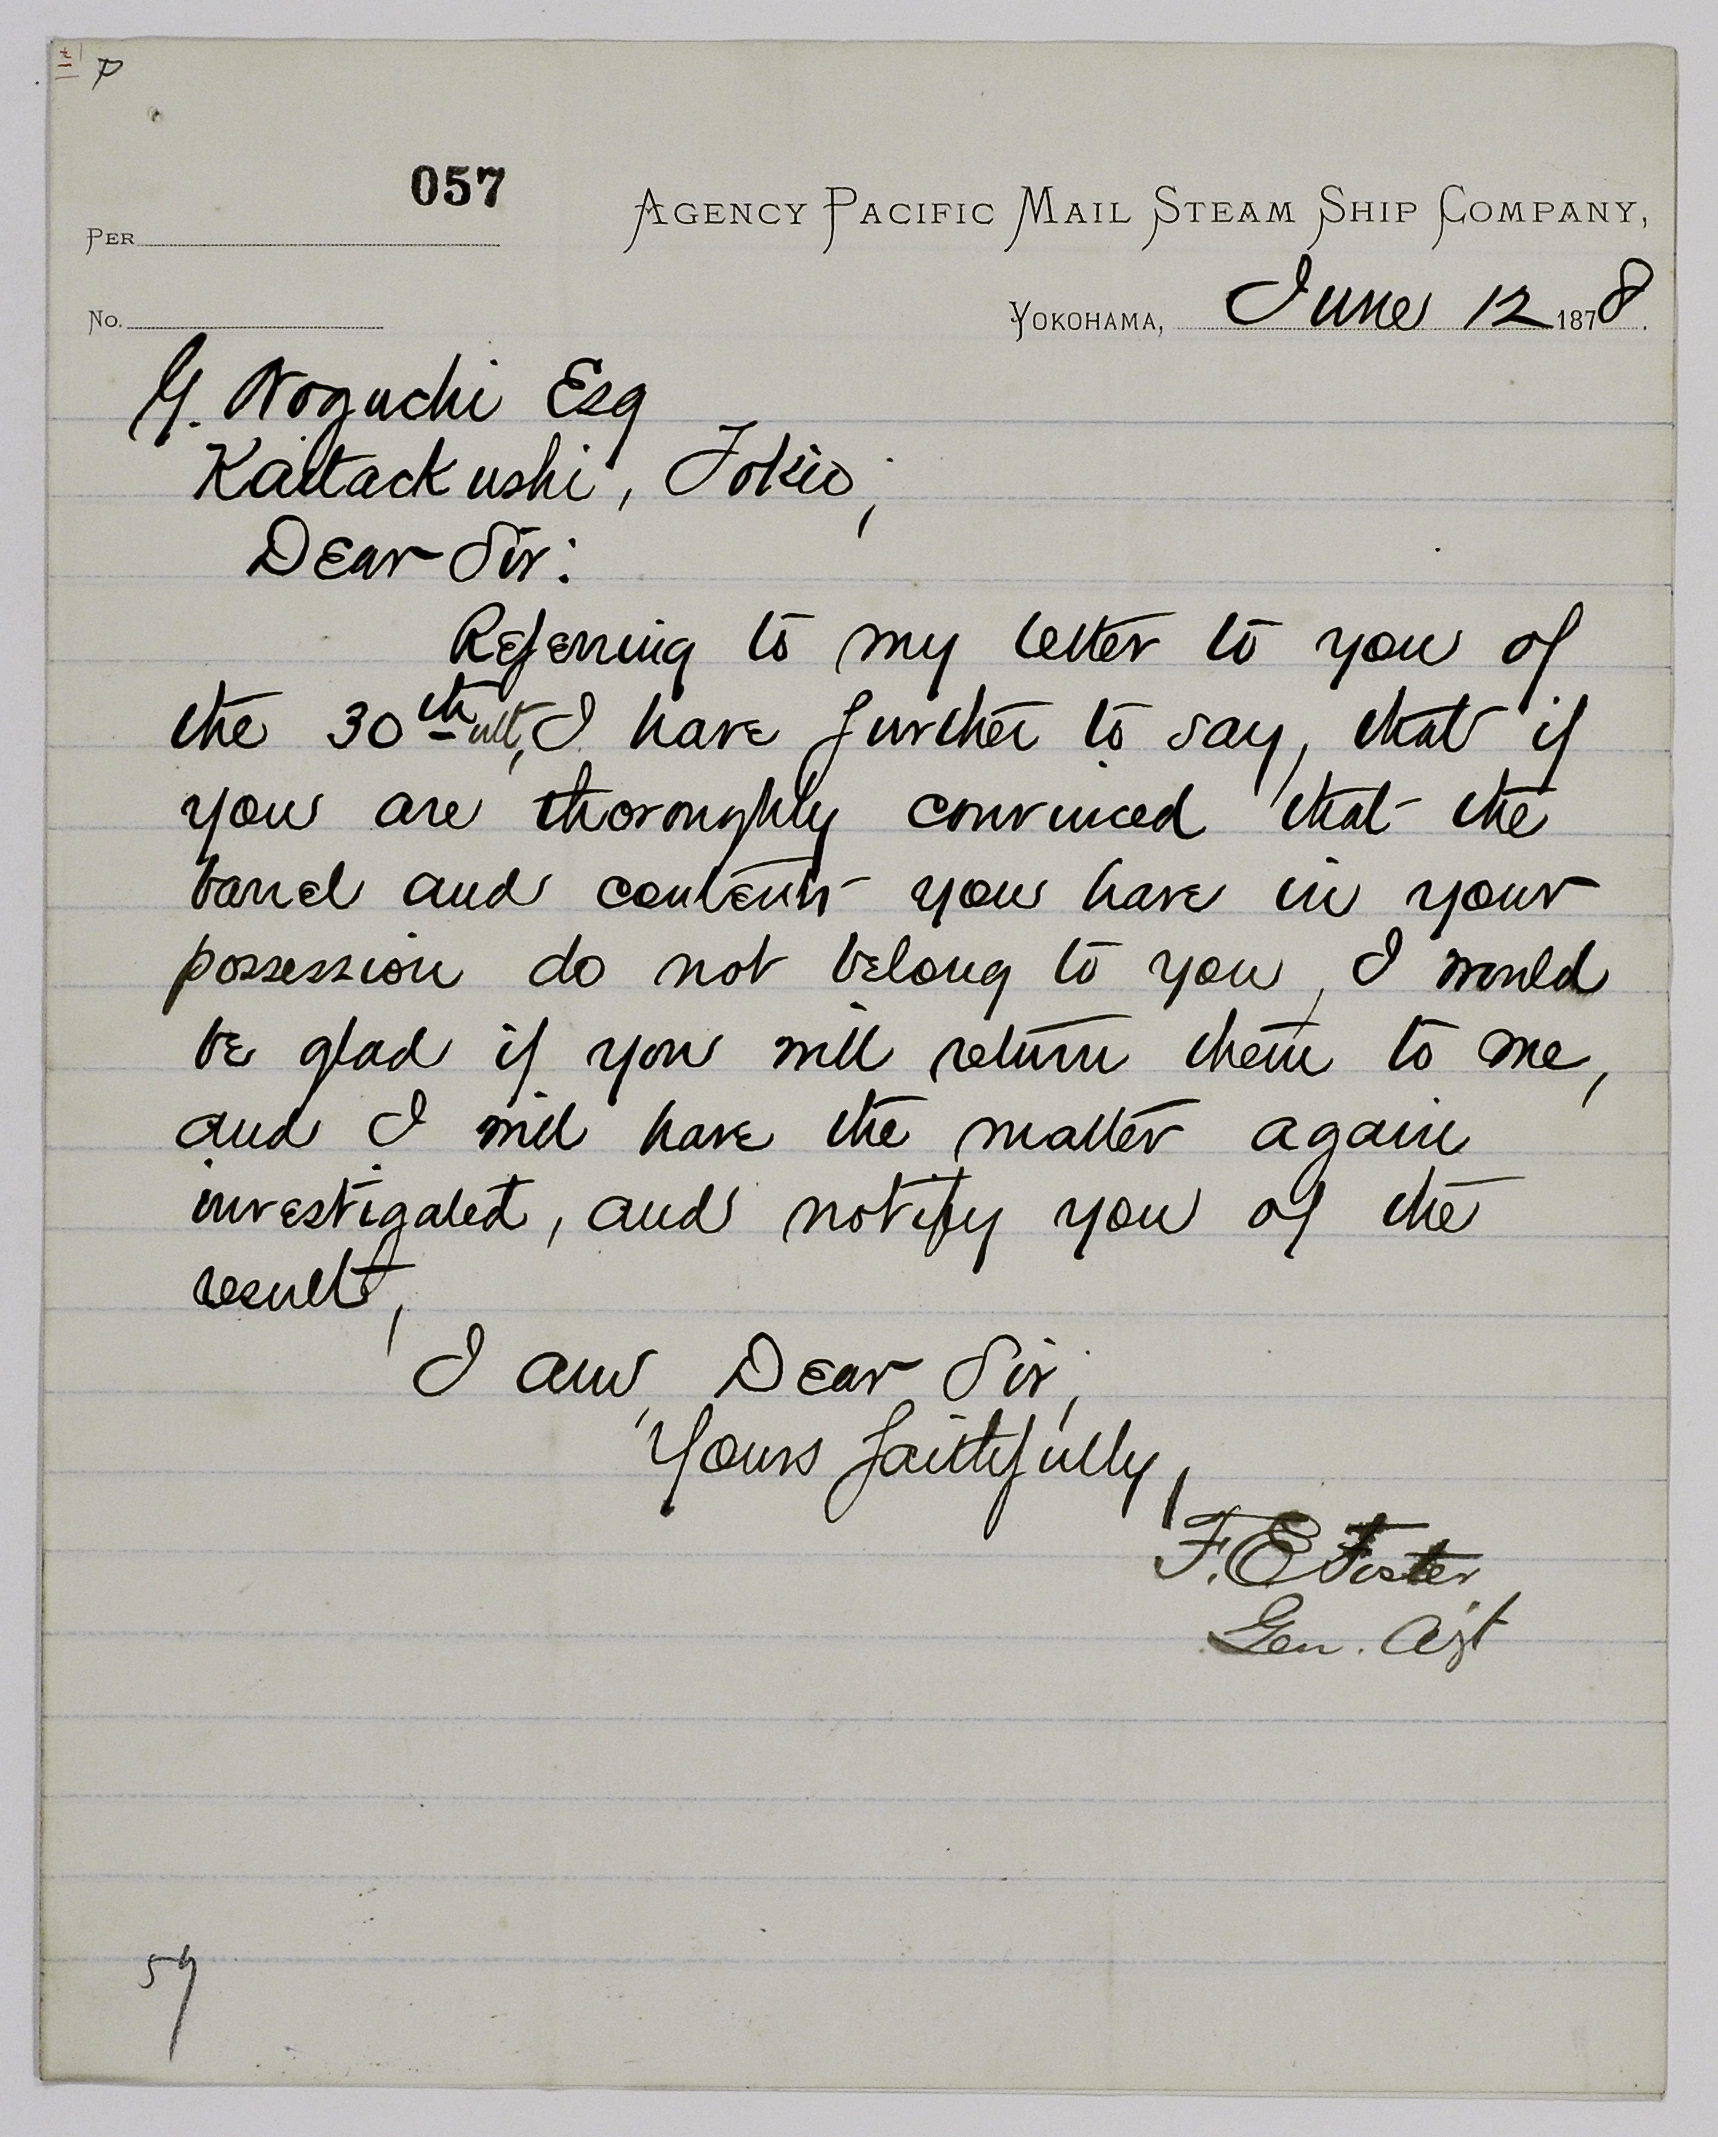 P
057
AGENCY PACIFIC MAIL STEAM SHIP COMPANY,
PER
YOKOHAMA, June 12 1878.
No.
G. Noguchi Esq
Kaitackushi, Tokio,
Dear Sir:
Referring to my letter to you of
the 30th ult, I have further to say, that if
you are thoroughly convinced that the
barrel and contents you have in your
possession do not belong to you, I would
be glad if you will return them to me,
and I will have the matter again
investigated, and notify you of the
result,
I am, Dear Sir,
Yours faithfully,
F. E Foster
Gen. Agt
59